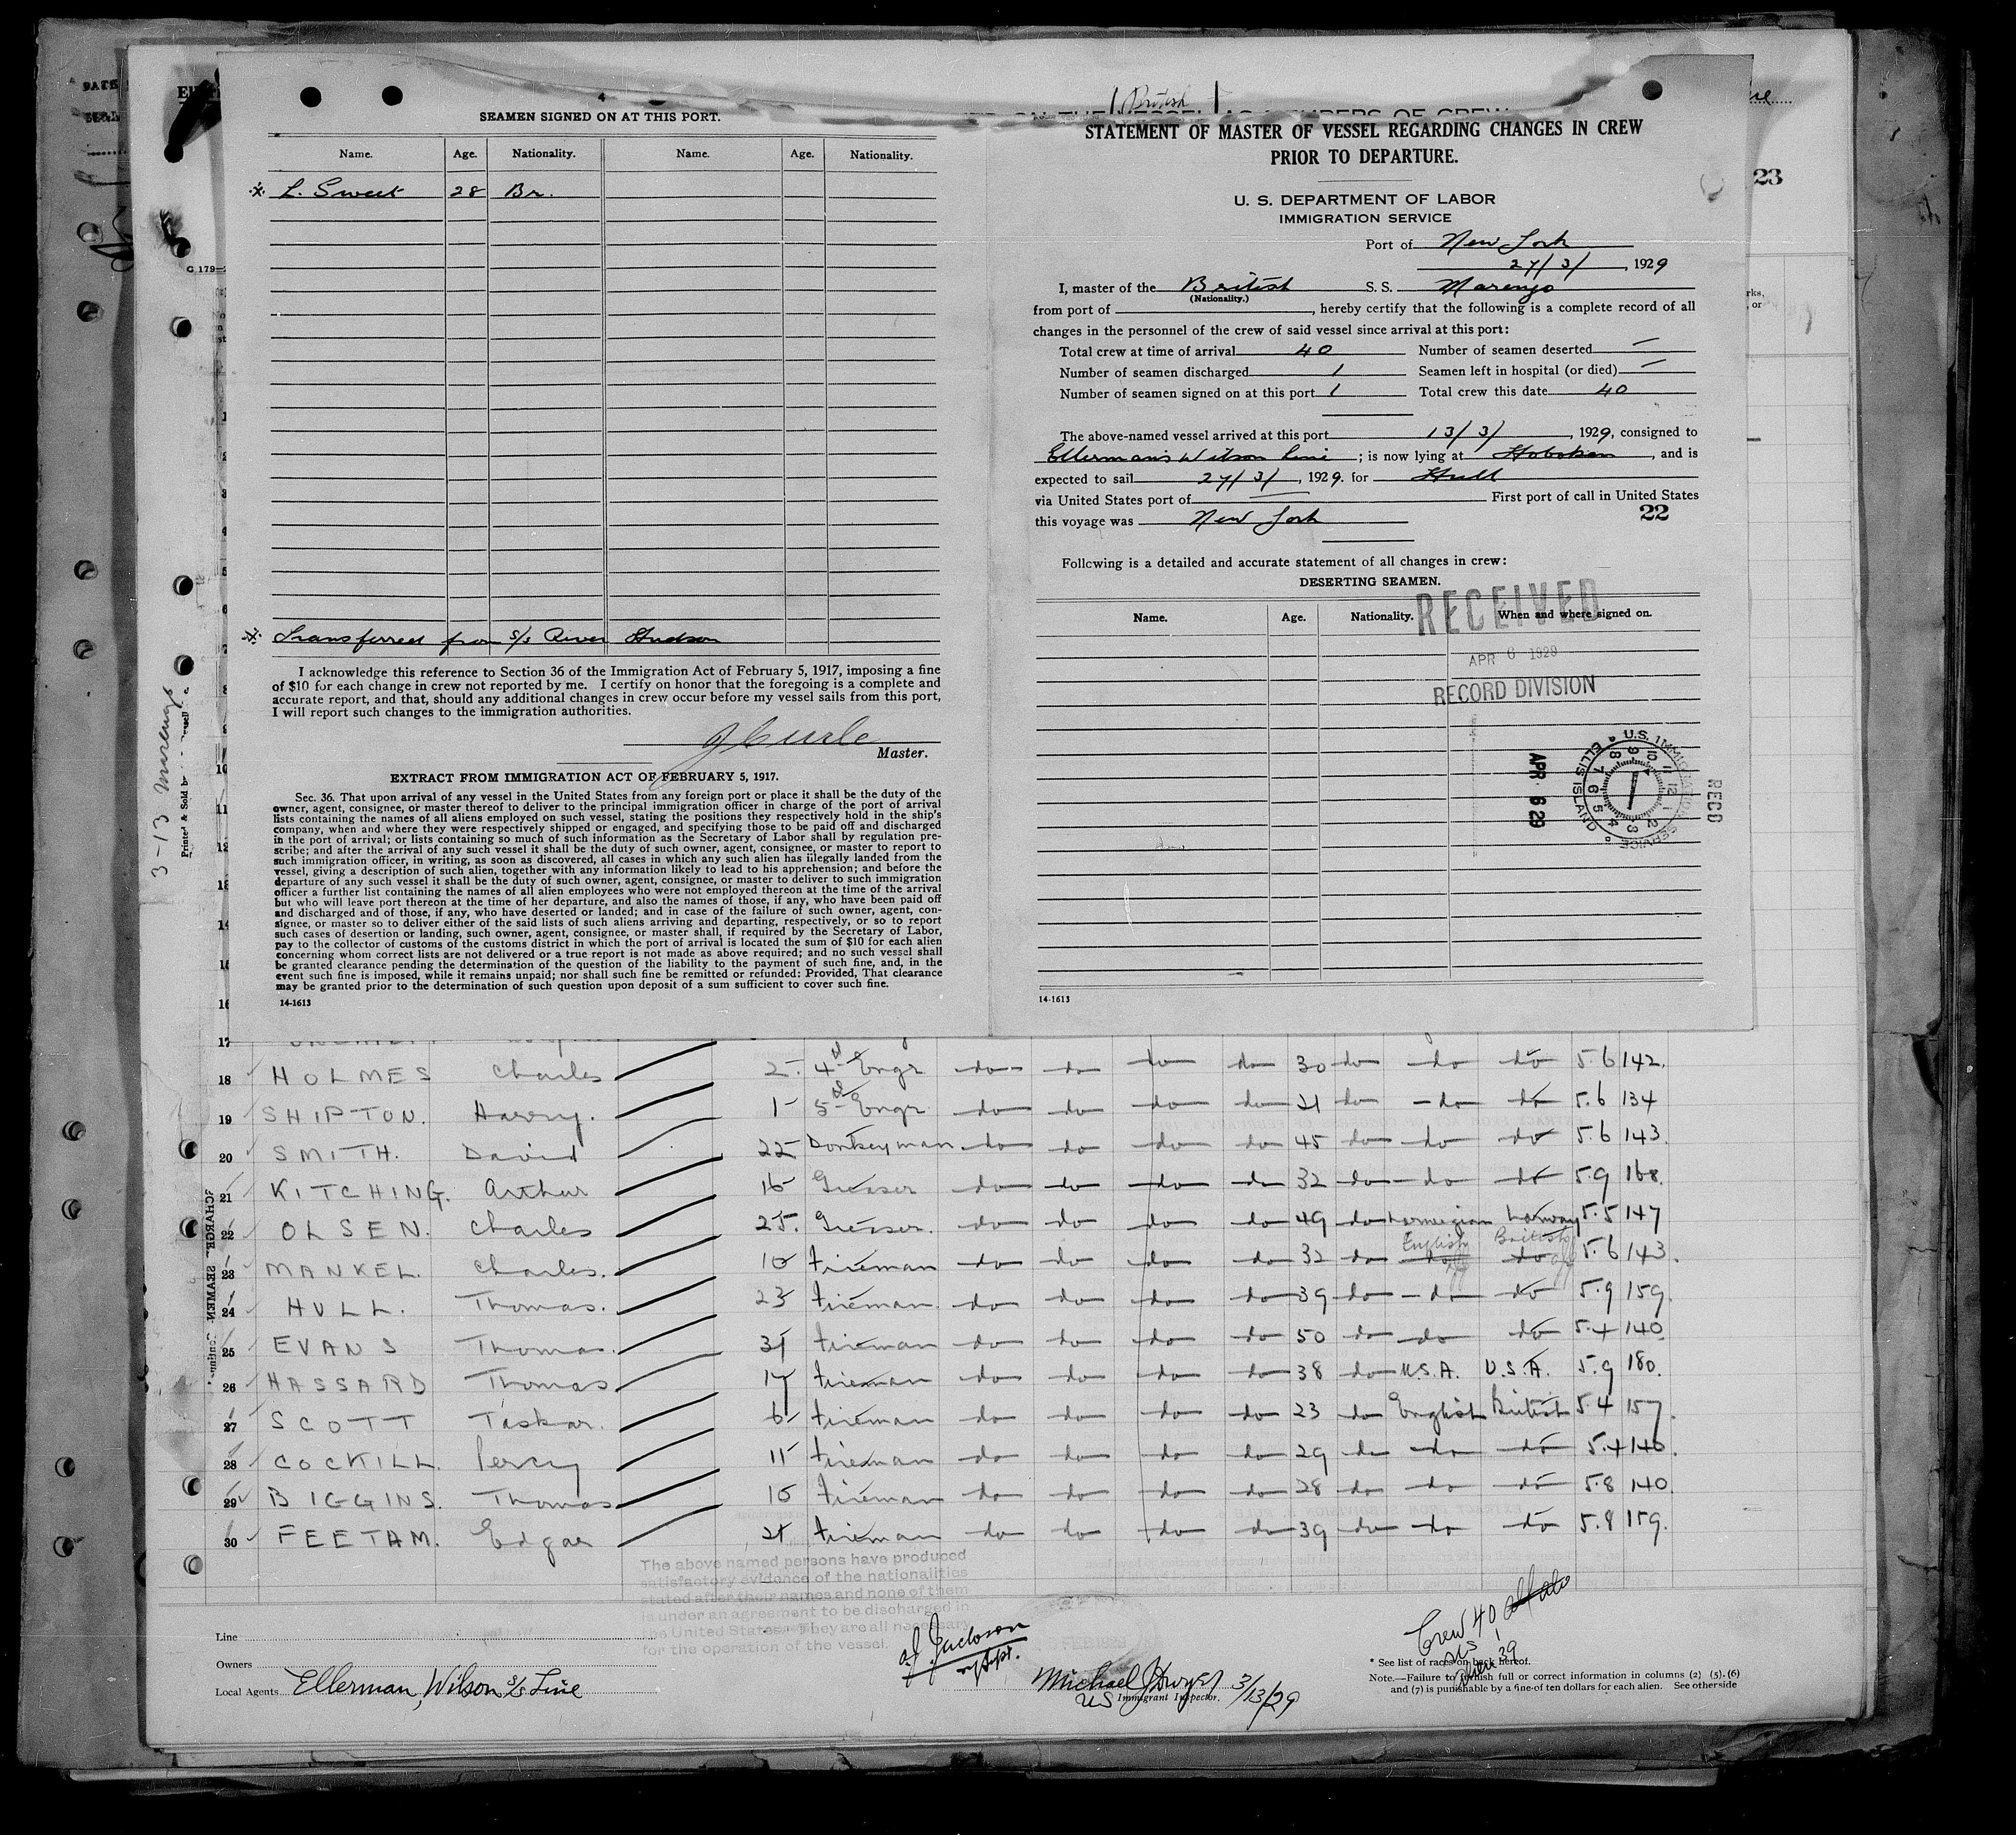 4
SEAMEN SIGNED ON AT THIS PORT.
Name. Age. Nationality. Name. Age. Nationality.
x L. Sweet 28 Br.
x Transferred from S/S River Hudson
I acknowledge this reference to Section 36 of the Immigration Act of February 5, 1917, imposing a fine
of $10 for each change in crew not reported by me. I certify on honor that the foregoing is a complete and
accurate report, and that, should any additional changes in crew occur before my vessel sails from this port,
I will report such changes to the immigration authorities.
Master.
EXTRACT FROM IMMIGRATION ACT OF FEBRUARY 5, 1917.
Sec. 36. That upon arrival of any vessel in the United States from any foreign port or place it shall be the duty of the
owner, agent, consignee, or master thereof to deliver to the principal immigration officer in charge of the port of arrival
lists containing the names of all aliens employed on such vessel, stating the positions they respectively hold in the ship's
company, when and where they were respectively shipped or engaged, and specifying those to be paid off and discharged
in the port of arrival; or lists containing so much of such information as the Secretary of Labor shall by regulation pre-
scribe; and after the arrival of any such vessel it shall be the duty of such owner, agent, consignee, or master to report to
such immigration officer, in writing, as soon as discovered, all cases in which any such alien has illegally landed from the
vessel, giving a description of such alien, together with any information likely to lead to his apprehension; and before the
departure of any such vessel it shall be the duty of such owner, agent, consignee, or master to deliver to such immigration
officer a further list containing the names of all alien employees who were not employed thereon at the time of the arrival
but who will leave port thereon at the time of her departure, and also the names of those, if any, who have been paid off
and discharged and of those, if any, who have deserted or landed; and in case of the failure of such owner, agent, con-
signee, or master so to deliver either of the said lists of such aliens arriving and departing, respectively, or so to report
such cases of desertion or landing, such owner, agent, consignee, or master shall, if required by the Secretary of Labor,
pay to the collector of customs of the customs district in which the port of arrival is located the sum of $10 for each alien
concerning whom correct lists are not delivered or a true report is not made as above required; and no such vessel shall
be granted clearance pending the determination of the question of the liability to the payment of such fine, and, in the
event such fine is imposed, while it remains unpaid; nor shall such fine be remitted or refunded: Provided, That clearance
may be granted prior to the determination of such question upon deposit of a sum sufficient to cover such fine.
14-1613
British
STATEMENT OF MASTER OF VESSEL REGARDING CHANGES IN CREW
PRIOR TO DEPARTURE.
U. S. DEPARTMENT OF LABOR
IMMIGRATION SERVICE
23
Port of New York
27/3/, 1929
I, master of the British S. S. Marengo
(Nationality.)
from port of , hereby certify that the following is a complete record of all
changes in the personnel of the crew of said vessel since arrival at this port:
Total crew at time of arrival 40 Number of seamen deserted —
Number of seamen discharged 1 Seamen left in hospital (or died) —
Number of seamen signed on at this port 1 Total crew this date 40
The above-named vessel arrived at this port 13/3/, 1929, consigned to
Ellerman's Wilson Line ; is now lying at Hoboken, and is
expected to sail 27/3/, 1929. for Hull
via United States port of — First port of call in United States
this voyage was New York 22
Following is a detailed and accurate statement of all changes in crew:
DESERTING SEAMEN.
Name. Age. Nationality. When and where signed on.
RECEIVED
APR 6 1929
RECORD DIVISION
U.S. IMMIGRATION SERVICE ELLIS ISLAND
APR 6 29
RECD
14-1613
3-13 Marengo
Printed & Sold by
17
18 HOLMES Charles 2 4th Engr do do do do 30 do do do 5.6 142
19 SHIPTON. Harry. 1 5th Engr do do do do 21 do do do 5.6 134
20 SMITH. David 22 Donkeyman do do do do 45 do do do 5.6 143
21 KITCHING. Arthur 15 Greaser do do do do 32 do do do 5.9 168
22 OLSEN. Charles 25. Greaser do do do do 49 do Norwegian Norway 5.5 147
English British
23 MANKEL. Charles. 10 Fireman do do do do 32 do do do 5.6 143
24 HULL. Thomas. 23 Fireman do do do do 39 do do do 5.9 159
25 EVANS Thomas. 31 Fireman do do do do 50 do do do 5.4 140
26 HASSARD Thomas 17 Fireman do do do do 38 do U.S.A. U.S.A. 5.9 180
27 SCOTT Taskar. 6 Fireman do do do do 23 do English British 5.4 157
28 COCKILL. Percy 11 Fireman do do do do 29 do do do 5.4 140
29 BIGGINS. Thomas 10 Fireman do do do do 28 do do do 5.8 140
30 FEETAM. Edgar 21 Fireman do do do do 39 do do do 5.8 159
The above named persons have produced
satisfactory evidence of the nationalities
stated after their names and none of them
is under an agreement to be discharged in
the United States. They are all necessary
for the operation of the vessel.
Line
Owners
Local Agents Ellerman, Wilson S/S Line
Jackson
FEB 1929
Michael 3/13/29
US Immigrant Inspector.
Crew 40
US 1
Alien 39
* See list of races on back hereof.
Note.—Failure to furnish full or correct information in columns (2) (5). (6)
and (7) is punishable by a fine of ten dollars for each alien. See otherside